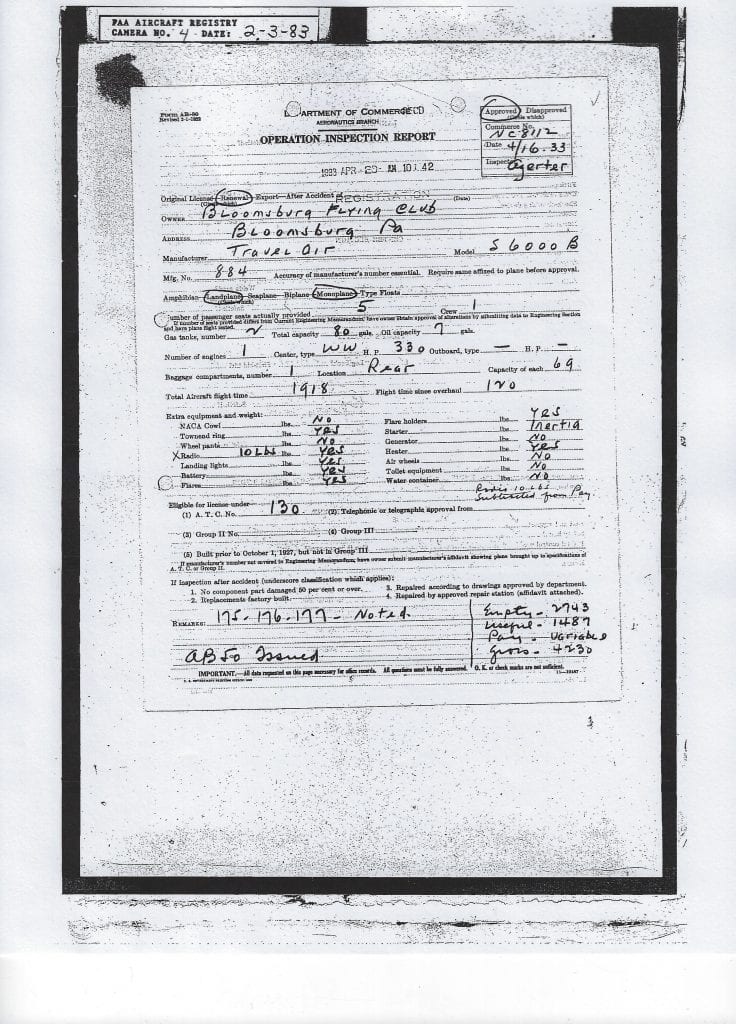 FAA AIRCRAFT REGISTRY
CAMERA NO. 4 DATE: 2-3-83
Form AB-50
DEPARTMENT OF COMMERCE
AERONAUTICS BRANCH
OPERATION INSPECTION REPORT
1933 APR 20 AM 10:42
Approved Disapproved
(Circle which)
Commerce No. NC8112
Date 4/16.33
Inspector
REGISTRATION
Original License—Renewal—Export—After Accident of (Date)
(Circle which)
OWNER Bloomsburg Flying Club
ADDRESS Bloomsburg Pa
Manufacturer Travel Air Model S 6000 B
Mfg. No. 884 Accuracy of manufacturer's number essential. Require same affixed to plane before approval.
Amphibian—Landplane—Seaplane—Biplane—Monoplane—Type Floats
(Circle which)
Number of passenger seats actually provided 5 Crew 1
If number of seats provided differs from Current Engineering Memorandum, have owner obtain approval of alterations by submitting data to Engineering Section
and have plane flight tested.
Gas tanks, number 2 Total capacity 80 gals. Oil capacity 7 gals.
Number of engines 1 Center, type WW H. P. 330 Outboard, type — H. P. —
Baggage compartments, number 1 Location Rear Capacity of each 69
Total Aircraft flight time 1918 Flight time since overhaul 120
Extra equipment and weight:
NACA Cowl lbs. No
Townend ring lbs. Yes
Wheel pants lbs. No
X Radio 10 Lbs lbs. Yes
Landing lights lbs. Yes
Battery lbs. Yes
Flares lbs. Yes
Flare holders lbs. Yes
Starter lbs. Inertia
Generator lbs. No
Heater lbs. Yes
Air wheels lbs. No
Toilet equipment lbs. No
Water container lbs. No
10 Lbs
Subtracted from Pay
Eligible for license under—
(1) A. T. C. No. 130 (2) Telephonic or telegraphic approval from
(3) Group II No. (4) Group III
(5) Built prior to October 1, 1927, but not in Group III
If manufacturer's number not covered in Engineering Memorandum, have owner submit manufacturer's affidavit showing plane brought up to specifications of
A. T. C. or Group II.
If inspection after accident (underscore classification which applies):
1. No component part damaged 50 per cent or over.
2. Replacements factory built.
3. Repaired according to drawings approved by department.
4. Repaired by approved repair station (affidavit attached).
REMARKS: 175-176-177- Noted.
AB50 Issued
Empty - 2743
Useful - 1487
Pay - Variable
Gross - 4230
IMPORTANT.—All data requested on this page necessary for office records. All questions must be fully answered. O. K. or check marks are not sufficient.